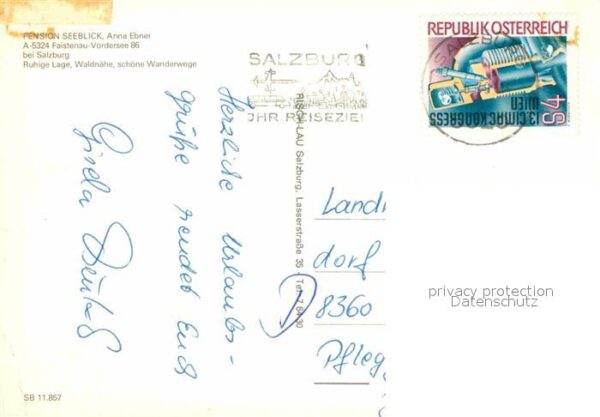 PENSION SEEBLICK, Anna Ebner
A-5324 Faistenau-Vordersee 86
bei Salzburg
Ruhige Lage, Waldnähe, schöne Wanderwege
SALZBURG
IHR REISEZIEL
REPUBLIK ÖSTERREICH
13. CIMAC KONGRESS
WIEN
S4
Herzliche Urlaubs-
grüße sendet Euch
Gisela
RISCH-LAU Salzburg, Lasserstraße 35 Tel. 7 64 30
Land
dorf
8360
Pfleg
privacy protection
Datenschutz
SB 11.857